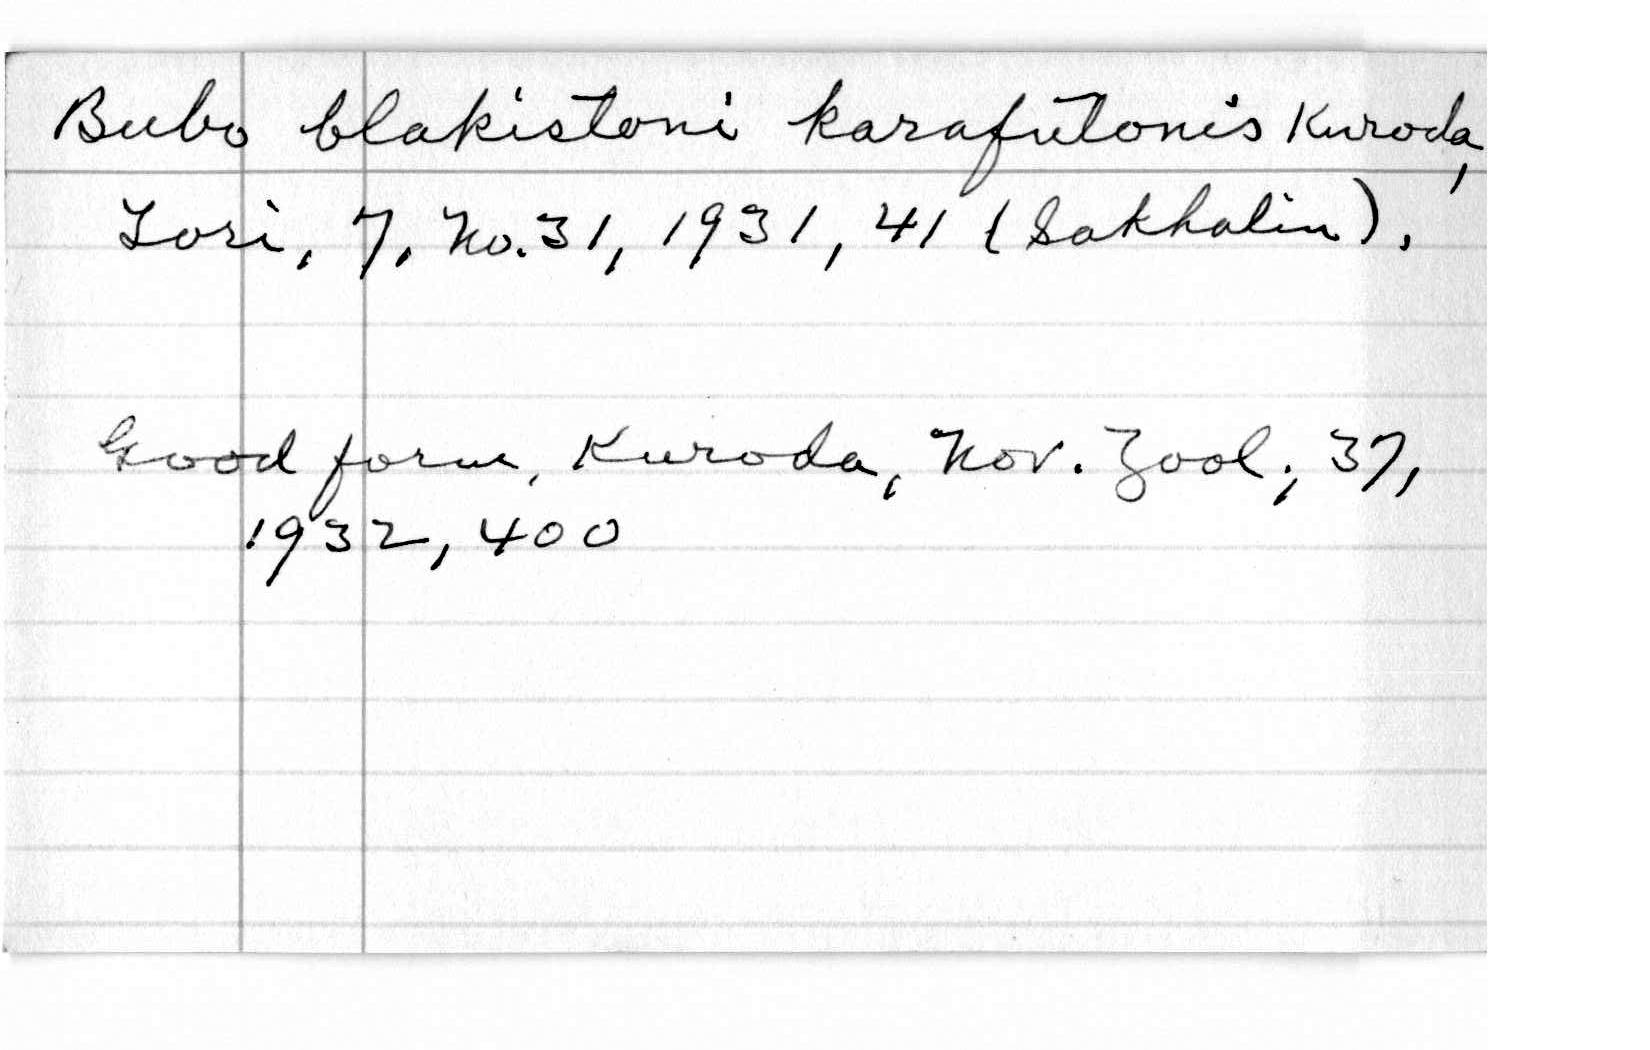 Bubo blakistoni karafutonis Kuroda,
Tori, 7, No. 31, 1931, 41 (Sakhalin).
Good form, Kuroda, Nov. Zool., 37,
1932, 400